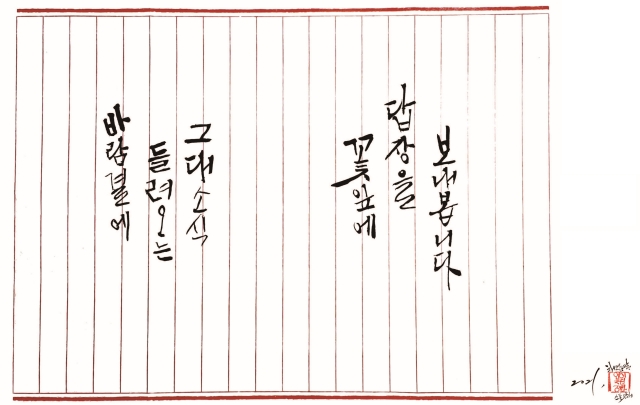 바람결에
들려오는
그대소식
꽃잎에
답장을
보내봅니다
2021.